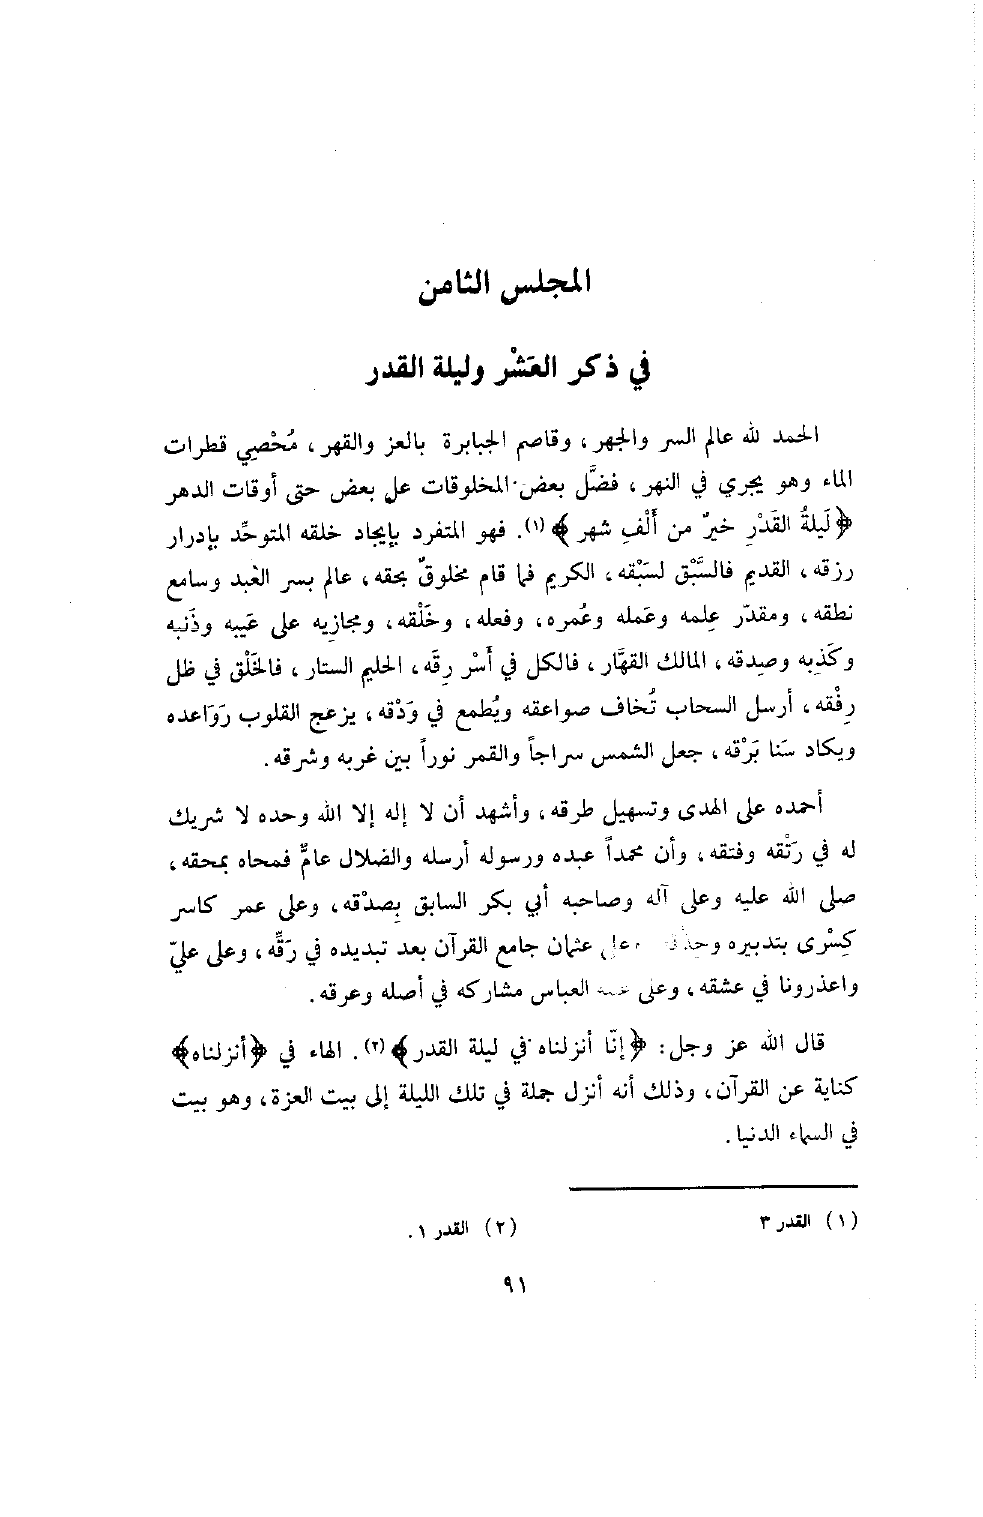 المجلس الثامن
في ذكر العَشْر وليلة القدر
الحمد لله عالم السر والجهر، وقاصم الجبابرة بالعز والقهر، مُحْصِي قطرات
الماء وهو يجري في النهر، فضَّل بعض المخلوقات على بعض حتى أوقات الدهر
﴿لَيلةُ القَدْرِ خيرٌ من أَلْفِ شهر﴾(١). فهو المتفرد بإيجاد خلقه المتوحِّد بإدرار
رزقه، القديم فالسَّبْق لسَبْقه، الكريم فما قام مخلوقٌ بحقه، عالم بسر العَبد وسامع
نطقه، ومقدّر عِلمه وعَمله وعُمره، وفعله، وخَلْقه، ومجازِيه على عَيبه وذَنبه
وكَذِبه وصِدقه، المالك القهَّار، فالكل في أَسْر رِقَه، الحليم الستار، فالخَلْق في ظل
رِفْقه، أرسل السحاب تُخاف صواعقه ويُطمع في وَدْقه، يزعج القلوب رَوَاعده
ويكاد سَنا بَرْقه، جعل الشمس سراجاً والقمر نوراً بين غربه وشرقه.
أحمده على الهدى وتسهيل طرقه، وأشهد أن لا إله إلا الله وحده لا شريك
له في رَتْقه وفتقه، وأن محمداً عبده ورسوله أرسله والضلال عامٌّ فمحاه بمحقه،
صلى الله عليه وعلى آله وصاحبه أبي بكر السابق بِصدْقه، وعلى عمر كاسر
كِسْرى بتدبيره على عثمان جامع القرآن بعد تبديده في رَقِّه، وعلى عليّ
واعذرونا في عشقه، وعلى العباس مشاركه في أصله وعرقه.
قال الله عز وجل: ﴿إنّا أنزلناه في ليلة القدر﴾(٢). الهاء في ﴿أنزلناه﴾
كناية عن القرآن، وذلك أنه أنزل جملة في تلك الليلة إلى بيت العزة، وهو بيت
في السماء الدنيا.
(١) القدر ٣
(٢) القدر ١.
٩١